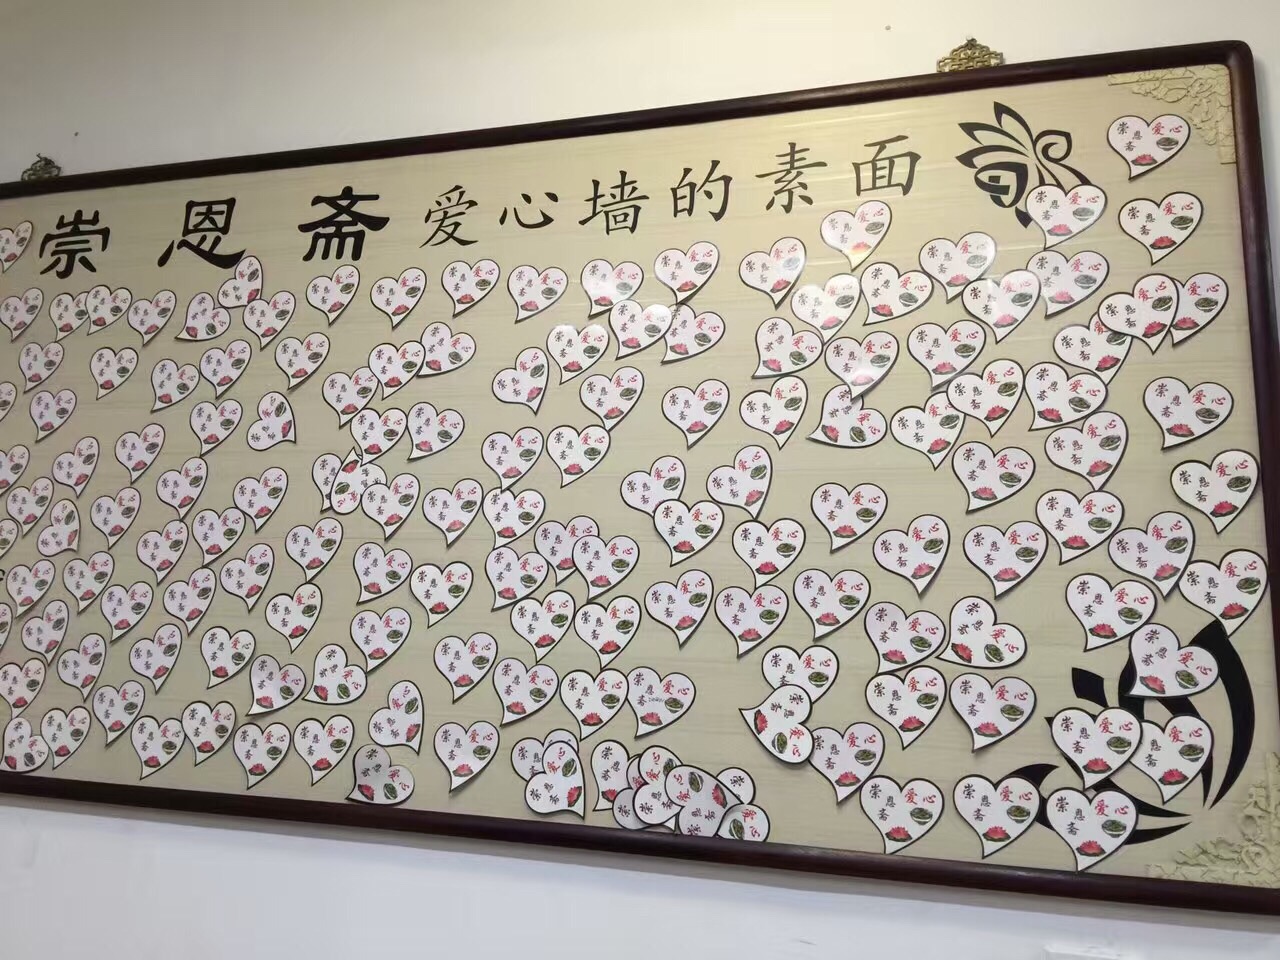 崇恩斋爱心墙的素面
崇恩斋
爱心